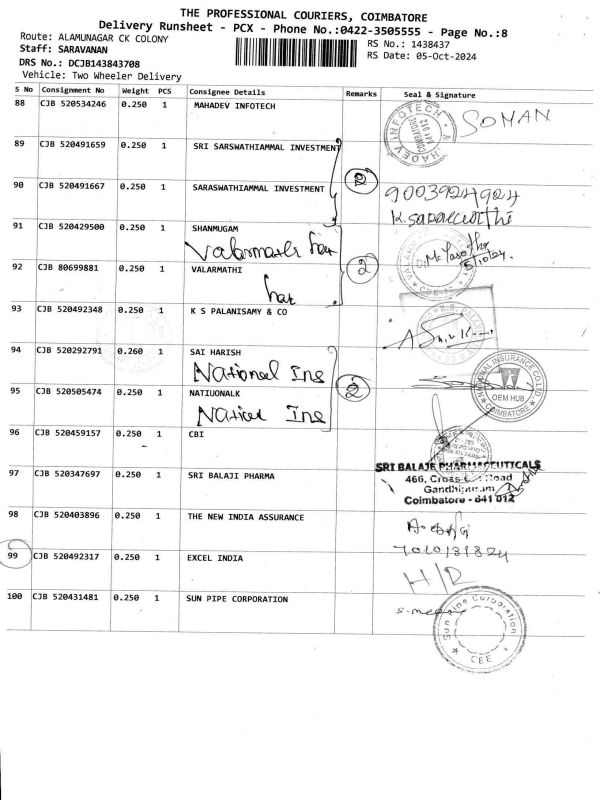 THE PROFESSIONAL COURIERS, COIMBATORE
Delivery Runsheet - PCX - Phone No.:0422-3505555 - Page No.:8
Route: ALAMUNAGAR CK COLONY
RS No.: 1438437
Staff: SARAVANAN
RS Date: 05-Oct-2024
DRS No.: DCJB143843708
Vehicle: Two Wheeler Delivery
S No Consignment No Weight PCS Consignee Details Remarks Seal & Signature
88 CJB 520534246 0.250 1 MAHADEV INFOTECH
SOMAN
89 CJB 520491659 0.250 1 SRI SARSWATHIAMMAL INVESTMENT
2
90 CJB 520491667 0.250 1 SARASWATHIAMMAL INVESTMENT
9003924924
91 CJB 520429500 0.250 1 SHANMUGAM
2
5/10/24
92 CJB 80699881 0.250 1 VALARMATHI
93 CJB 520492348 0.250 1 K S PALANISAMY & CO
94 CJB 520292791 0.260 1 SAI HARISH
National Ins
2
NATIONAL INSURANCE CO LTD
OEM HUB
COIMBATORE
95 CJB 520505474 0.250 1 NATIUONALK
Ins
96 CJB 520459157 0.250 1 CBI
97 CJB 520347697 0.250 1 SRI BALAJI PHARMA
SRI BALAJE PHARMACEUTICALS
466, Cross Cut Road
Gandhipuram
Coimbatore - 641 012
98 CJB 520403896 0.250 1 THE NEW INDIA ASSURANCE
99 CJB 520492317 0.250 1 EXCEL INDIA
H/D
100 CJB 520431481 0.250 1 SUN PIPE CORPORATION
Sun Pipe Corporation
CBE